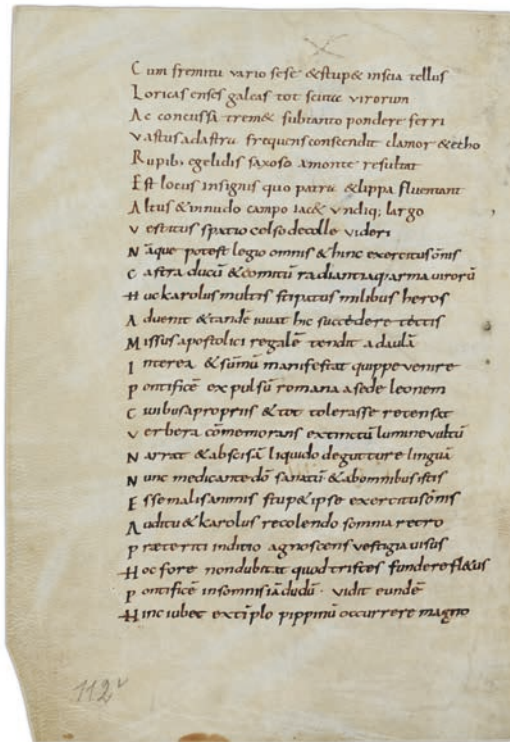 Cum fremitu vario sese & stup& inscia tellus
Loricas enses galeas tot scuta virorum
Ac concussa trem& subtanto pondere ferri
Vastus adastra frequens conscendit clamor & etho
Rupib; egelidis saxoso amonte resultat
Est locus insignis quo patra & lippa fluentant
Altus & innudo campo iac& undiq; largo
Vestitus spatio celso decolle videri
Nāque potest legio omnis & hinc exercitus ōnis
Castra ducū & comitū radiantiaq; arma virorū
Huc karolus multis stipatus milibus heros
Advenit & tandē iuuat hic succedere tectis
Missus apostolici regalē tendit adaulā
Interea & sūmū manifestat quippe venire
Pontificē expulsū romana asede leonem
Civibus apropriis & tot tolerasse retensat
Verbera cōmemorans extinctū lumine vultū
Narrat & abscisā liquido degutture linguā
Nunc medicante dō sanatū & abomnibus istis
Esse malis animis stup& ipse exercitus ōnis
Auditu & karolus recolendo somnia retro
Præteriti inditio agnoscens vestigia uisus
Hoc fore nondubitat quod tristes fundere fl&us
Pontificē insomnis iādudū · vidit eundē
Hinc iubet extēplo pippinū occurrere magno
112v